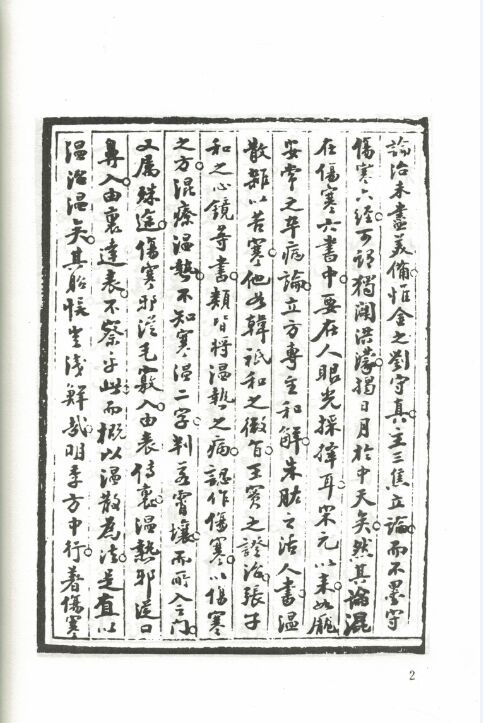 論治未盡美備惟金之劉守真主三焦立論而不墨守
傷寒六經可謂獨闢洪濛揭日月於中天矣然其論混
在傷寒六書中要在人眼光採擇耳宋元以來如龐
安常之卒病論立方專主和解朱肱之活人書溫
散雜以苦寒他如韓祗和之微旨王實之證治張子
和之心鏡等書類皆將溫熱之病認作傷寒以傷寒
之方混療溫熱不知寒溫二字判若霄壤而所入之門
又屬殊途傷寒邪從毛竅入由表傳裏溫熱邪從口
鼻入由裏達表不察乎此而概以溫散為法是直以
溫治溫矣其貽悞豈淺鮮哉明季方中行著傷寒
2